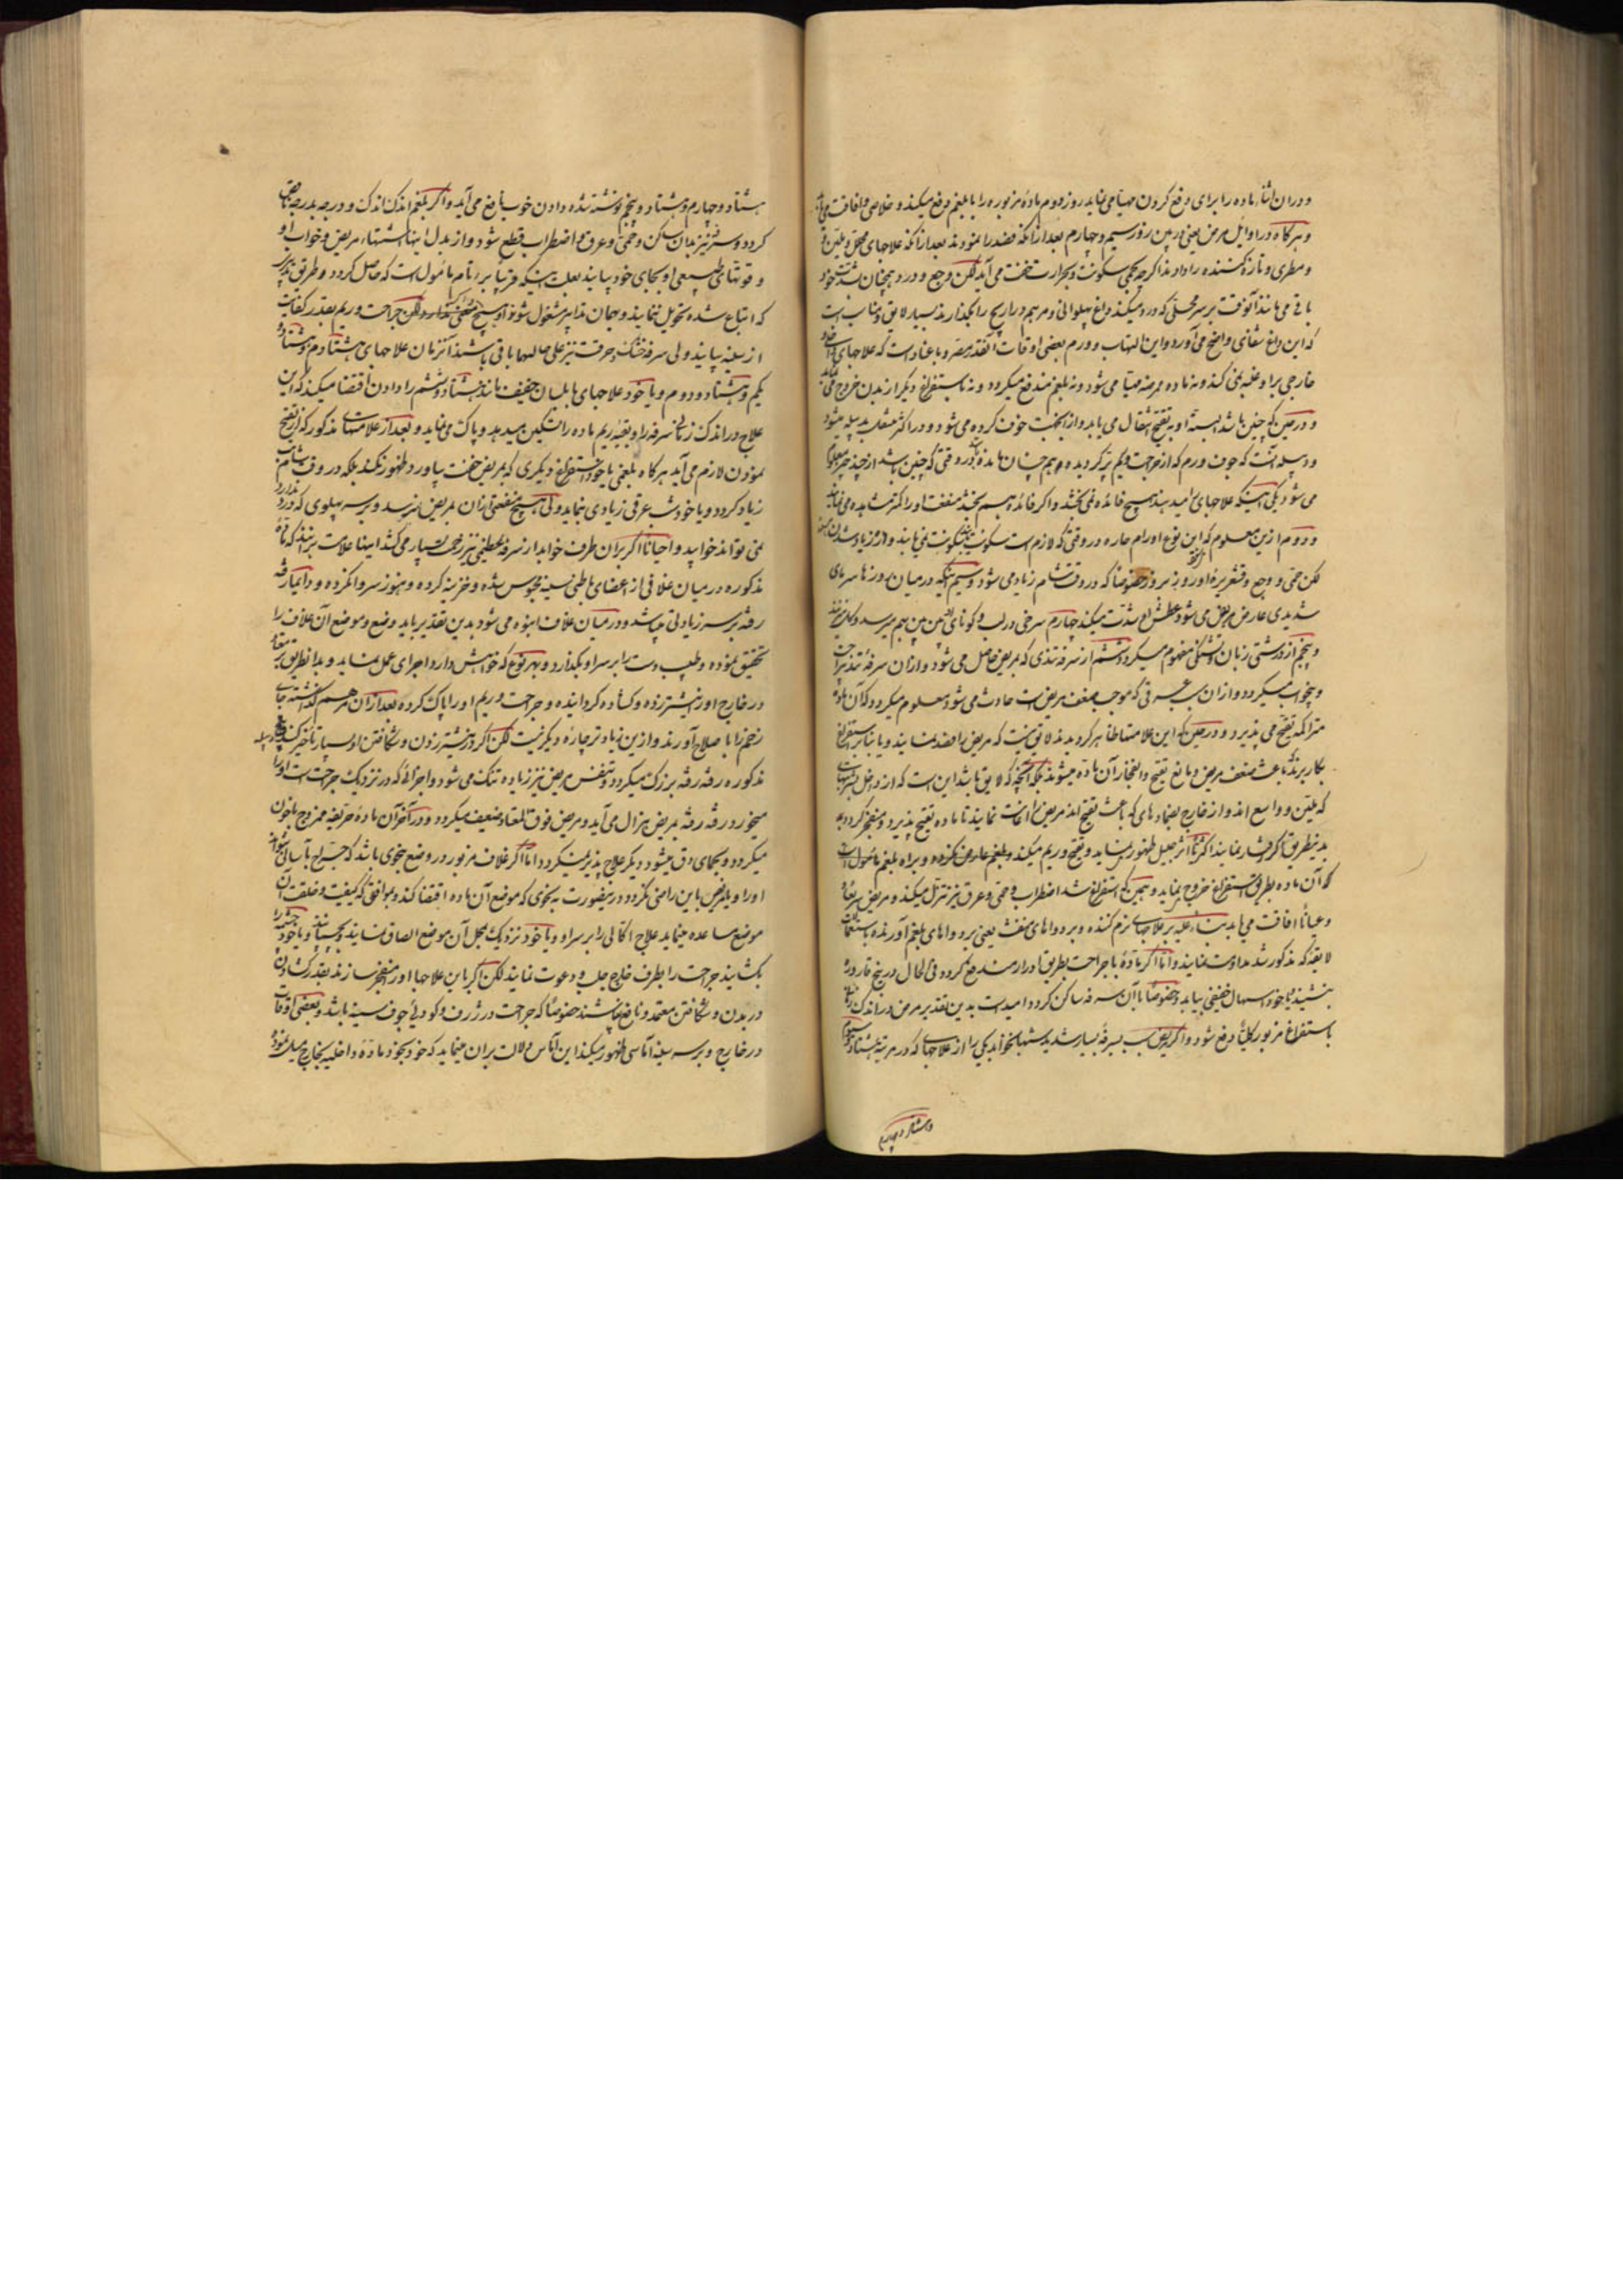 ودران اثنا ماده را برای دفع کردن مهیا می نماید روز دوم ماده مزبوره را با بلغم دفع میکند و خلاصی و افاقت می یابد
و هرگاه در اوایل مرض یعنی در بین روز سیم و چهارم بعد از آنکه فصد را نمودند بعد از آنکه علاجهای محلل و ملین و
و مطری و تازه کننده را دادند اگرچه حمی بسکونت و حرارت بخفت می آید لکن وجع و درد همچنان بشدت خود
باقی می ماند آنوقت بر سر محلی که درد میکند داغ پهلوانی و مرهم ذراریح را بگذارند بسیار لایق و مناسب است
که این داغ شفای واضح می آورد و این التهاب و ورم بعضی اوقات آنقدر مصر و با عناد است که علاجهای
خارجی براو غلبه نمی کند و نه ماده ممرضه مهیا می شود و نه ببلغم مندفع میگردد و نه باستفراغ دیگر از بدن خروج می نماید
و در حین که چنین باشد البته او به تقیح انتقال می یابد و از این جهت خوف کرده می شود و در اکثر منقلب بدبیله میشود
و دبیله آنست که جوف ورم که از جراحت و ریم پر گردیده و هم چنان مانده باشد در وقتی که چنین باشد از چند چیز معلوم
می شود یکی اینکه علاجهای امید بند هیچ فائده نمی بخشد و اگر فائده هم بخشد منفعت او را کمتر مشاهده می نمایند
و دوم ازین معلوم که این نوع اورام حاره در وقتی که لازم است سکونت یابند سکونت نمی یابند و از زیاد شدن
لکن حمی و وجع و قشعریره او روز بروز خصوصا که در وقت شام زیاد می شود و سیم آنکه در میان روزها سرمای
شدیدی عارض مریض می شود و عطش او شدت میکند چهارم سرخی در لب و گونهای
و پنجم از درشتی زبان و تشنگی مفهوم میگردد و ششم از سرفه تندی که بمریض حاصل می شود و از آن سرفه تند
و بیخواب میگردد و از آن عرقی که موجب ضعف مریض است حادث می شود معلوم میگردد که آن ماده
متراکمه تقیح می پذیرد و در حین که این علامتها ظاهر گردیدند لایق نیست که مریض را فصد نمایند و یا بتاثیر استفراغ
بکار برند که باعث ضعف مریض و مانع تقیح و انفجار آن ماده میشوند بلکه آنچه که لایق باشد این است که از داخل بشربتهای
که ملین و واسع اند و از خارج بضمادهای که باعث تقیح اند مریض را اعانت نمایند تا ماده تقیح پذیرد و منفجر گردد
بدینطریق که رفتار نمایند اکثر اثر جلیل ظهور نماید و تقیح و ریم میکند و بلغم عارض نکرده و براه بلغم مامول است
که آن ماده بطریق استفراغ خروج نماید و همین که استفراغ شد اضطراب و حمی و عرق نیز تنزل میکند و مریض سریعا
و عیانا افاقت می یابد بناء علیه بر علاجهای نرم کننده و بر دواهای منفث یعنی بر دواهای بلغم آورنده باستعمالات
لایقه که مذکور شد مداومت نمایند و اما اگر ماده با جراحت بطریق ادرار مندفع گردد فی الحال دریغ قاروره
بنشیند یا خود اسهال خفیفی بیاید و خصوصا با آن سرفه ساکن گردد امید است بدین تقدیر مرض در اندک زمان
باستفراغ مزبور کلیا دفع شود و اگر مریض بسبب سرفه بسیار شدید شبها نخوابد یکی را از علاجهای که در مرتبه هشتاد و سیوم
و هشتاد و چهارم
هشتاد و چهارم و هشتاد و پنجم نوشته شده دادن خوب نافع می آید و اگر بلغم اندک اندک و درجه بدرجه ناقص
گردد و سرفه نیز بدان ساکن و حمی و عرق و اضطراب قطع شود و از بدل اینها اشتهاء مریض و خواب او
و قوتهای طبیعی او بجای خود بیایند بعلت اینکه قریبا بر تام مامول است که حاصل گردد و طریق تدابیر
که اتباع شده تحویل ننمایند و بهمان تدابیر مشغول شوند و هیچ لکن جراحت و ریم بقدر کفایت
از سینه بیایند ولی سرفه خشک و حرقت نیز علی حالهما باقی باشند آنزمان علاجهای هشتادم و هشتاد و
یکم و هشتاد و دوم و یا خود علاجهای بابلسان خفیف مانند هشتاد و ششم را دادن اقتضا میکند که این
علاج در اندک زمانی سرفه را و بقیه ریم ماده را تسکین میدهد و پاک می نماید و بعد از علامتهای مذکور که از تقیح
نمودن لازم می آید هرگاه بلغمی یا خود استفراغ دیگری که بمریض خفت بیاورد ظهور نکند بلکه در وقت شام
زیاد گردد و یا خود شب عرقی زیادی نماید ولی هیچ منفعتی از آن بمریض نرسد و بر سر پهلوی که درد ندارد
نمی تواند خوابید و احیانا اگر بر آن طرف خوابد از سرفه عظیمی نیز زحمت بسیار می کشد اینها علامت براینند که ماده
مذکوره در میان غلافی از اعضای باطنی سینه محبوس شده و خزینه کرده و هنوز سر وا نکرده و دایما رفته
رفته بر سر زیادتی میباشد و در میان غلاف انبوه می شود بدین تقدیر باید وضع و موضع آن غلاف را
تحقیق نموده و طبیب دست را بر سر او بگذارد و بهر نوع که خواهش دارد اجرای عمل نماید و بدانطریق
در خارج او را نیشتر زده و گشاده گردانیده و جراحت و ریم او را پاک کرده بعد از آن مرهم گذاشته جای
زخم را با صلاح آورند و ازین زیادتر چاره دیگر نیست لکن اگر در نیشتر زدن و شکافتن او بسیار تاخیر کنند دبیله
مذکوره رفته رفته بزرگ میگردد و تنفس مریض نیز زیاده تنگ می شود و اجزائی که در نزدیک جراحت است او را
میخورد رفته رفته بمریض هزال می آید و مریض فوق المعتاد ضعیف میگردد و در آخر آن ماده حریفه ممزوج با خون
میگردد و بحمای دق میشود دیگر علاج پذیر نمیگردد اما اگر غلاف مزبور در وضع بنحوی باشد که جراح بآسانی بتواند
او را و یا مریض باین راضی نگردد در اینصورت به نحوی که موضع آن ماده اقتضا کند و بموافقی که کیفیت و خلقت آن
موضع مساعده مینماید علاج اکالی را بر سر او و یا خود نزدیک بمحل آن موضع الصاق نمایند و بچسبانند و یا خود
بکشایند جراحت را بطرف خارج جلب و دعوت نمایند لکن اگر باین علاجها او را منفجر سازند بعد از کشادن
در بدن و شکافتن معتمد و نافع نباشند خصوصا که جراحت در ژرف و گودیی جوف سینه باشد و بعضی اوقات
در خارج و بر سر سینه آماسی ظهور میکند این آماس دلالت بر آن مینماید که خود بخود ماده داخلیه بخارج میل نموده